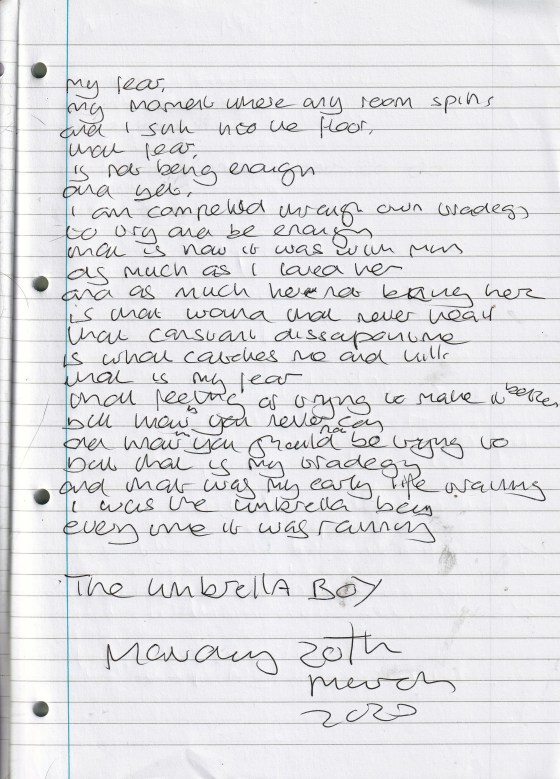 my fear,
my moment where any room spins
and I sink into the floor,
that fear,
is not being enough
and yet,
I am compelled through own tradegy
to try and be enough
that is how it was with mum
as much as I loved her
and as much not being here
is that wound that never heals
that constant dissapointme
is what catches me and kills
that is my fear
that feeling of trying to make it better
but know you never can
and know you should not be trying to
but that is my tradegy
and that was my early life training
I was the umbrella boy
every time it was raining
The UmbrellA BOY
Monday 20Th
March
2020